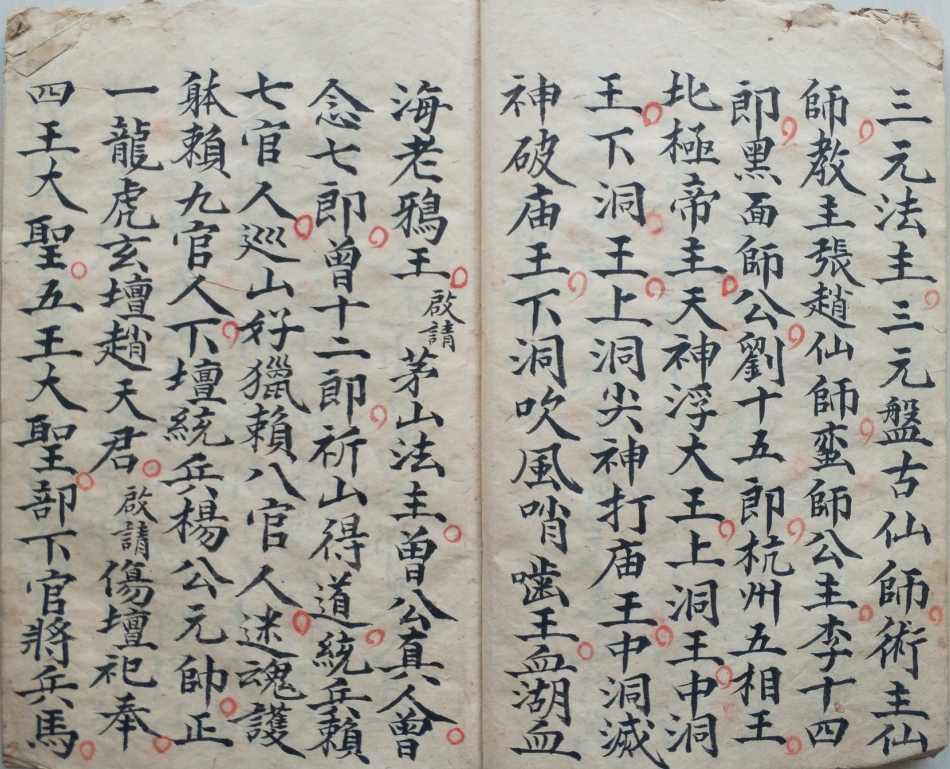 三元法主三元盤古仙師術主仙
師教主張趙仙師蛮師公主李十四
郎黑面師公劉十五郎杭州五相王
北極帝主天神浮大王上洞王中洞
王下洞王上洞尖神打庙王中洞滅
神破庙王下洞吹風哨囓王血湖血
海老鴉王啟請茅山法主曾公真人曾
念七郎曾十二郎祈山得道統兵賴
七官人巡山好獵賴八官人迷魂護
躰賴九官人下壇統兵楊公元帥正
一龍虎玄壇趙天君啟請傷壇祀奉
四王大聖五王大聖部下官將兵馬